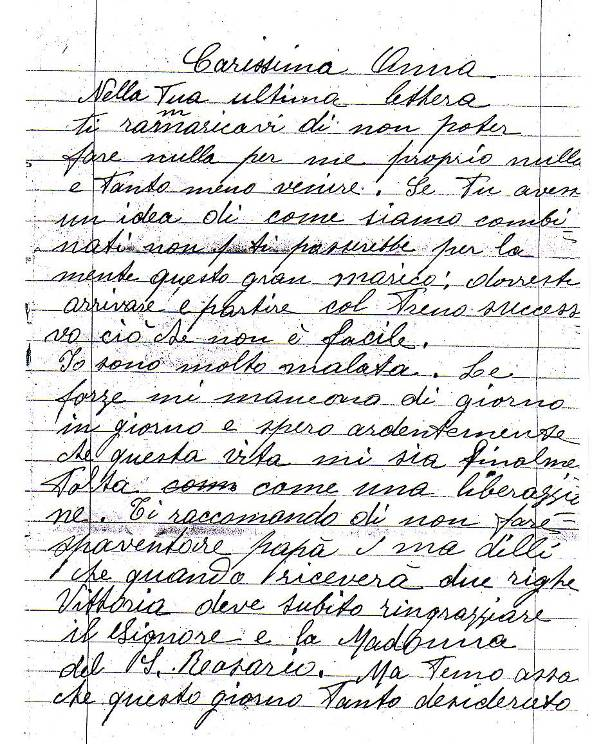 Carissima Anna
Nella Tua ultima lettera
ti rammaricavi di non poter
fare nulla per me proprio nulla
e Tanto meno venire. Se Tu avess
un idea di come siamo combi=
nati non ti passerebbe per la
mente questo gran; dovresti
arrivare e partire col Treno success
vo ciò che non è facile.
Io sono molto malata. Le
forze mi mancono di giorno
in giorno e spero ardentemente
che questa vita mi sia finalme
Tolta come una liberazzio
ne. Ti raccomando di non fare=
spaventare papà ma dilli
che quando riceverà due righe
Vittoria deve subito ringrazziare
il Signore e la Madonna
del S. Rosario. Ma Temo assa
che questo giorno Tanto desiderato